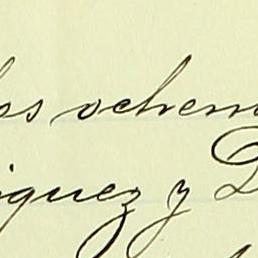 os ochen
iquez y D